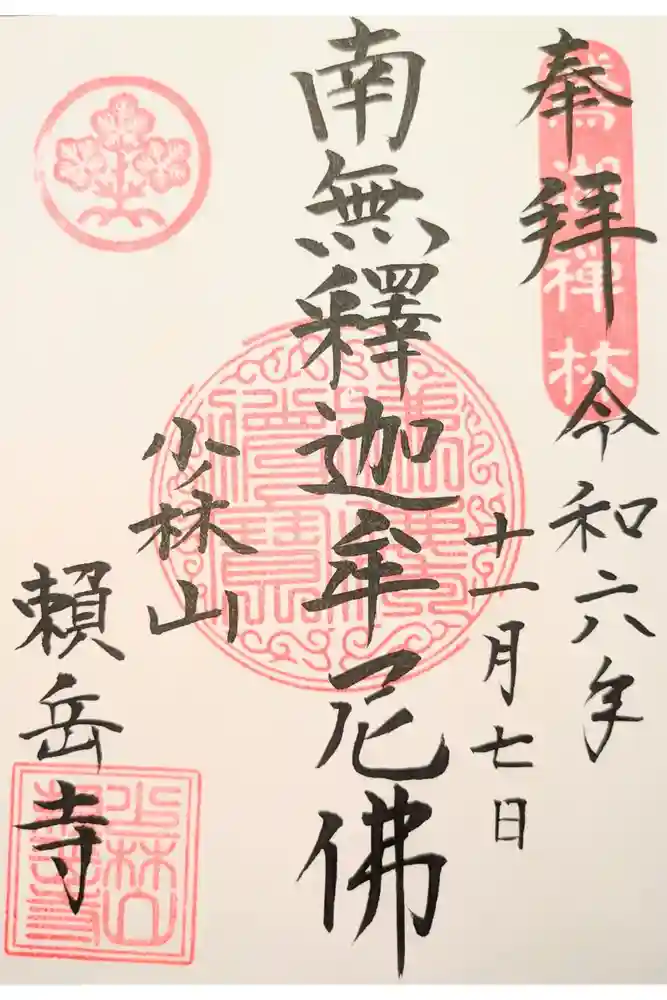 奉拜
令和六年
十一月七日
南無釋迦牟尼佛
少林山
賴岳寺